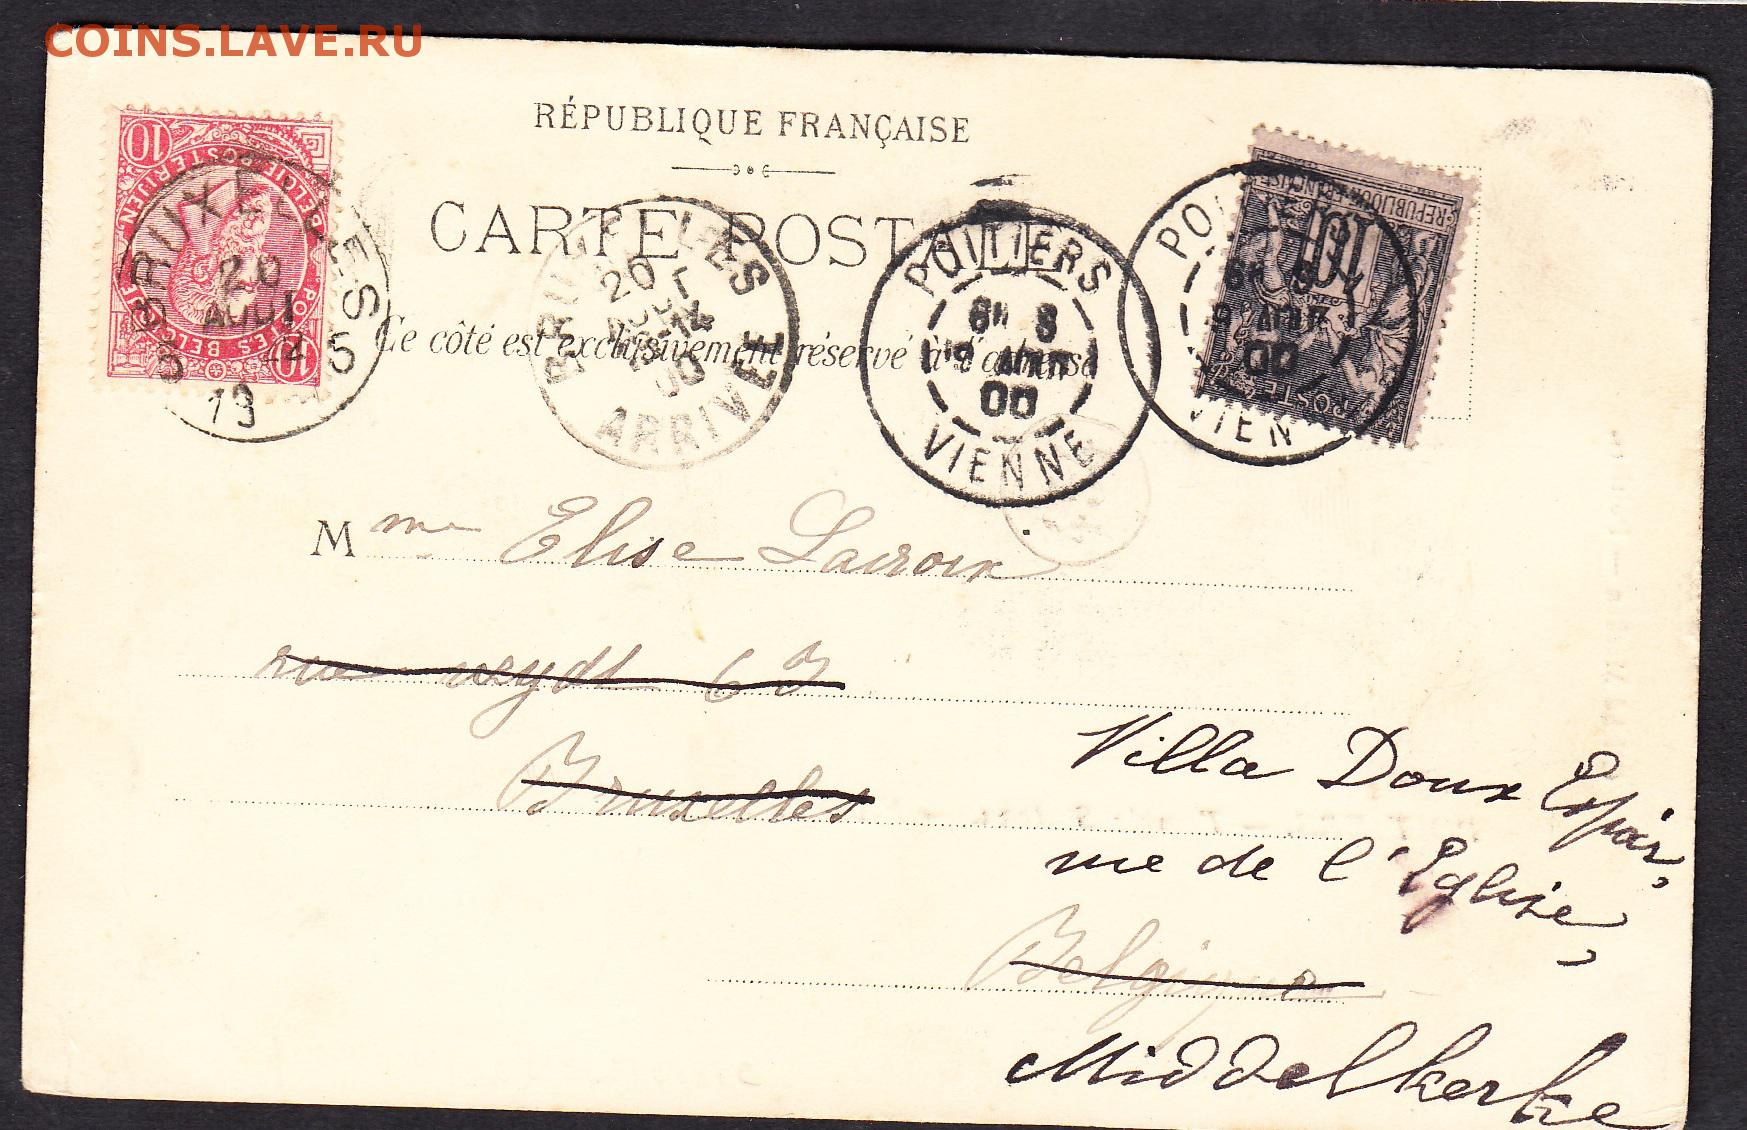 COINS.LAVE.RU
RÉPUBLIQUE FRANÇAISE
CARTE POSTALE
Ce côté est exclusivement réservé à l'adresse
10
BELGIE POSTERIJEN
POSTES BELGIQUE
10
BRUXELLES 5
20
AOUT
19
5
BRUXELLES
20
AOUT
13-14
00
ARRIVÉE
POITIERS
00
VIENNE
RÉPUBLIQUE FRANÇAISE
10
POSTE
POITIERS
00
VIENNE
Mme Elise Lacroix
rue Veydt 63
Bruxelles
Belgique
Villa Doux Espoir,
rue de l'Eglise,
Middelkerke